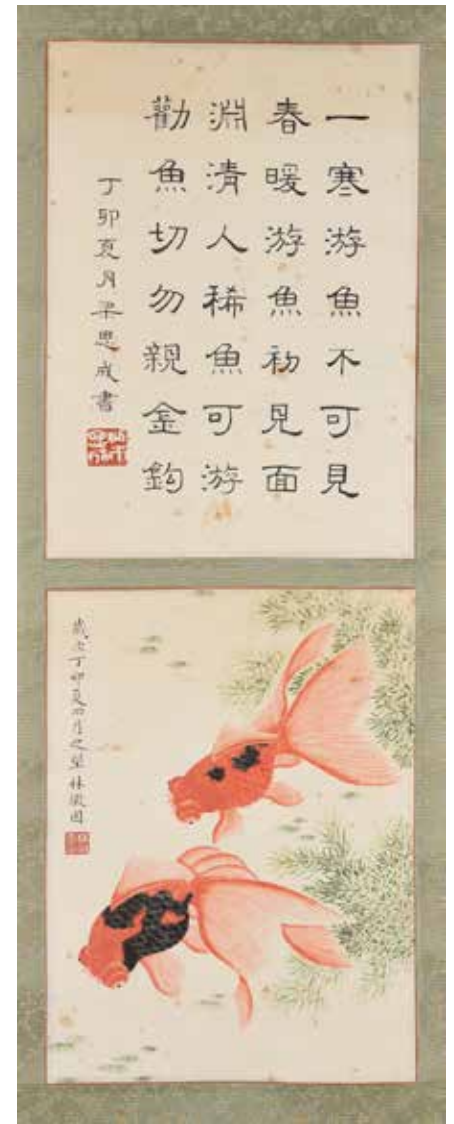 一寒游魚不可見
春暖游魚初見面
淵清人稀魚可游
勸魚切勿親金鈎
丁卯夏月梁思成書
歲次丁卯夏四月之望林徽因